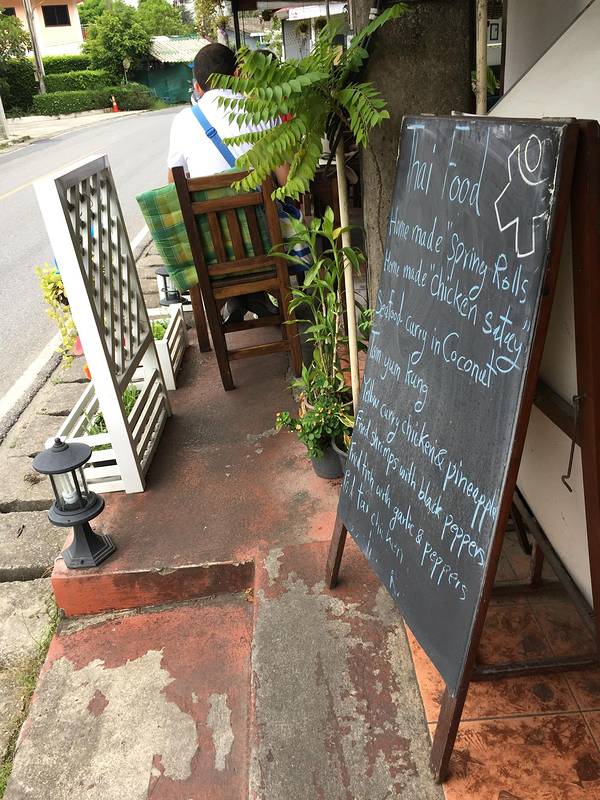 Thai Food
Home made "Spring Rolls
Home made "Chicken Satay"
Seafood Curry in Coconut
Tom yum kung
Yellow curry chicken & pineapple
Fried shrimps with black peppers
Fried fish with garlic & peppers
chicken